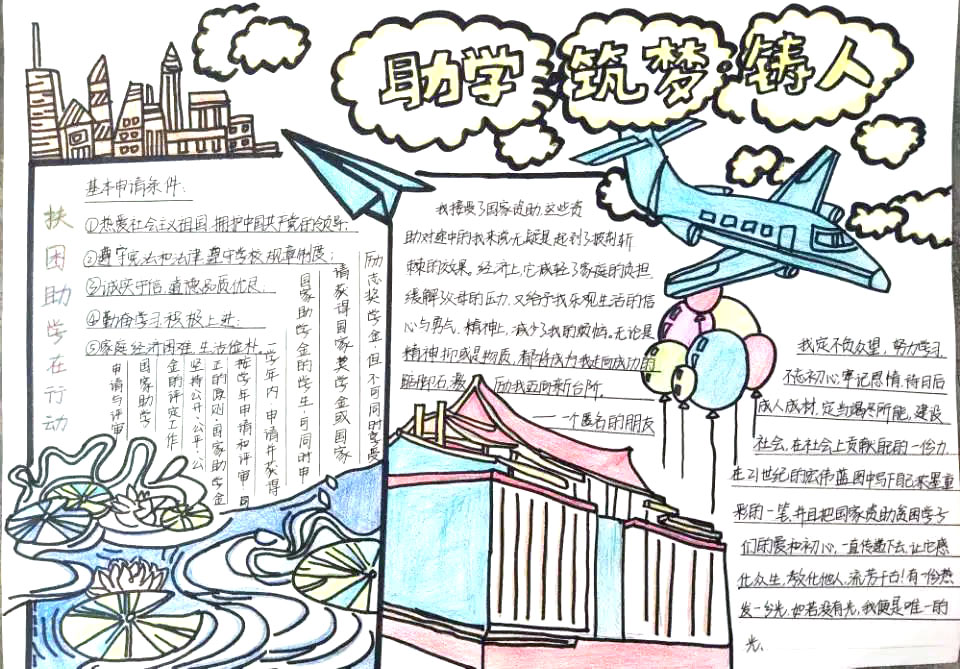 助学·筑梦·铸人
扶困助学在行动
基本申请条件：
①热爱社会主义祖国，拥护中国共产党的领导；
②遵守宪法和法律，遵守学校规章制度；
③诚实守信，道德品质优良
④勤奋学习，积极上进；
⑤家庭经济困难，生活俭朴。
申请与评审
国家助学
金的评定工作
坚持公开、公平、公
正的原则，国家助学金
按学年申请和评审
一学年内，申请并获得
国家助学金的学生，可同时申
请获得国家奖学金或国家
励志奖学金，但不可同时享受
我接受了国家资助，这些资
助对途中的我来说无疑是起到了披荆斩
棘的效果。经济上，它减轻了家庭的负担，
缓解了父母的压力，又给予我乐观生活的信
心与勇气。精神上，减少了我的烦恼。无论是
精神抑或是物质，都将成为我走向成功的
踮脚石，激励我迈向新台阶。
——一个匿名的朋友
我定不负众望，努力学习，
不忘初心，牢记恩情，待日后
成人成材，定当竭尽所能，建设
社会，在社会上贡献自己的一份力，
在21世纪的宏伟蓝图中写下自己浓墨重
彩的一笔，并且把国家资助贫困学子
们的爱和初心，一直传递下去，让它感
化众生，教化他人，流芳千古！有一份热
发一分光，如若没有光，我便是唯一的
光。